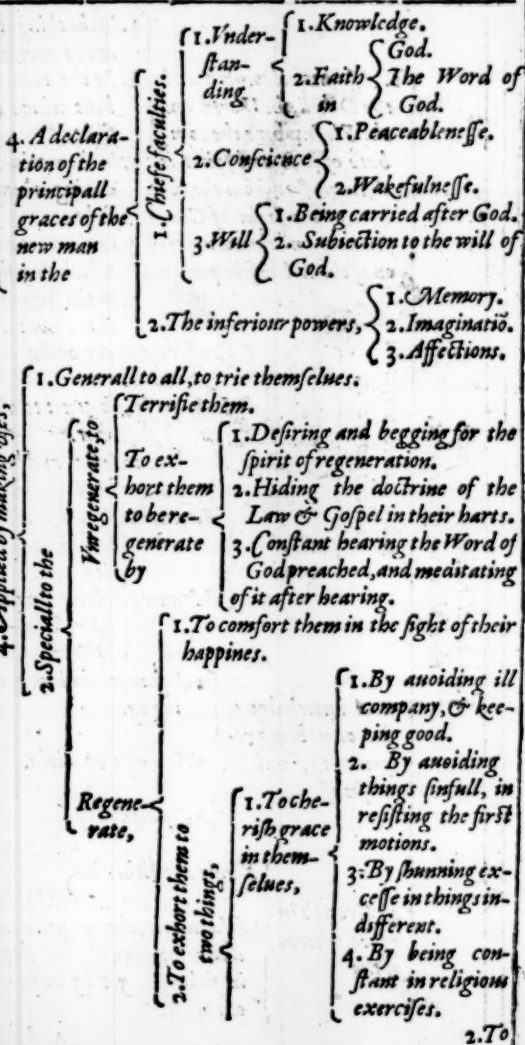 4. A declara-
tion of the
principall
graces of the
new man
in the
1. Chiefe faculties.
1. Vnder-
ſtan-
ding
1. Knowledge.
2. Faith
in
God.
The Word of
God.
2. Conſcience
1. Peaceableneſſe.
2. Wakefulneſſe.
3. Will
1. Being carried after God.
2. Subiection to the will of
God.
2. The inferiour powers,
1. Memory.
2. Imaginatiō.
3. Affections.
1. Generall to all, to trie themſelues.
2. Speciall to the
Vnregenerate, to
Terrifie them.
To ex-
hort them
to be re-
generate
by
1. Deſiring and begging for the
ſpirit of regeneration.
2. Hiding the doctrine of the
Law & Goſpel in their harts.
3. Conſtant hearing the Word of
God preached, and meditating
of it after hearing.
Regene-
rate,
1. To comfort them in the ſight of their
happines.
2. To exhort them to
two things,
1. To che-
riſh grace
in them-
ſelues,
1. By auoiding ill
company, & kee-
ping good.
2. By auoiding
things ſinfull, in
reſiſting the firſt
motions.
3. By ſhunning ex-
ceſſe in things in-
different.
4. By being con-
ſtant in religious
exerciſes.
2. To